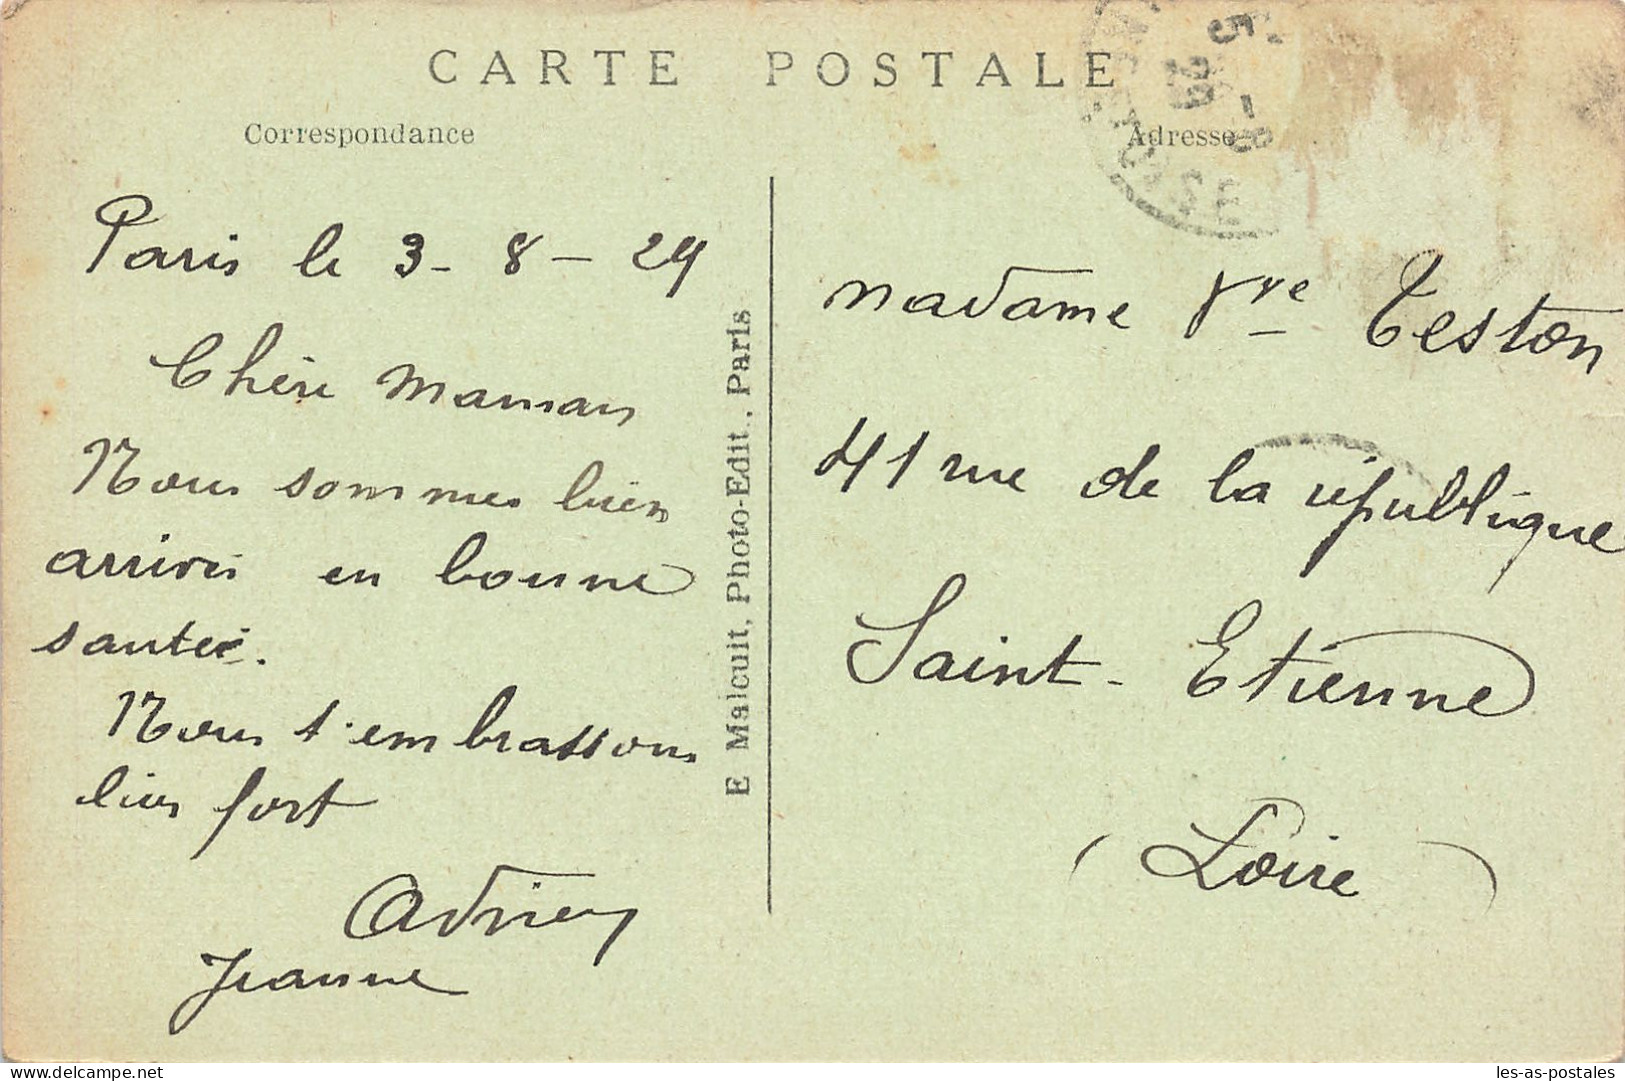 CARTE POSTALE
Correspondance
Adresse
Paris le 3 - 8 - 29
Chère Maman
Nous sommes bien
arrivés en bonne
santée.
Nous t'embrassons
bien fort
Adrien
Jeanne
E Malcuit, Photo-Edit., Paris
madame Vve Teston
41 rue de la république
Saint-Etienne
(Loire)
delcampe.net
les-as-postales